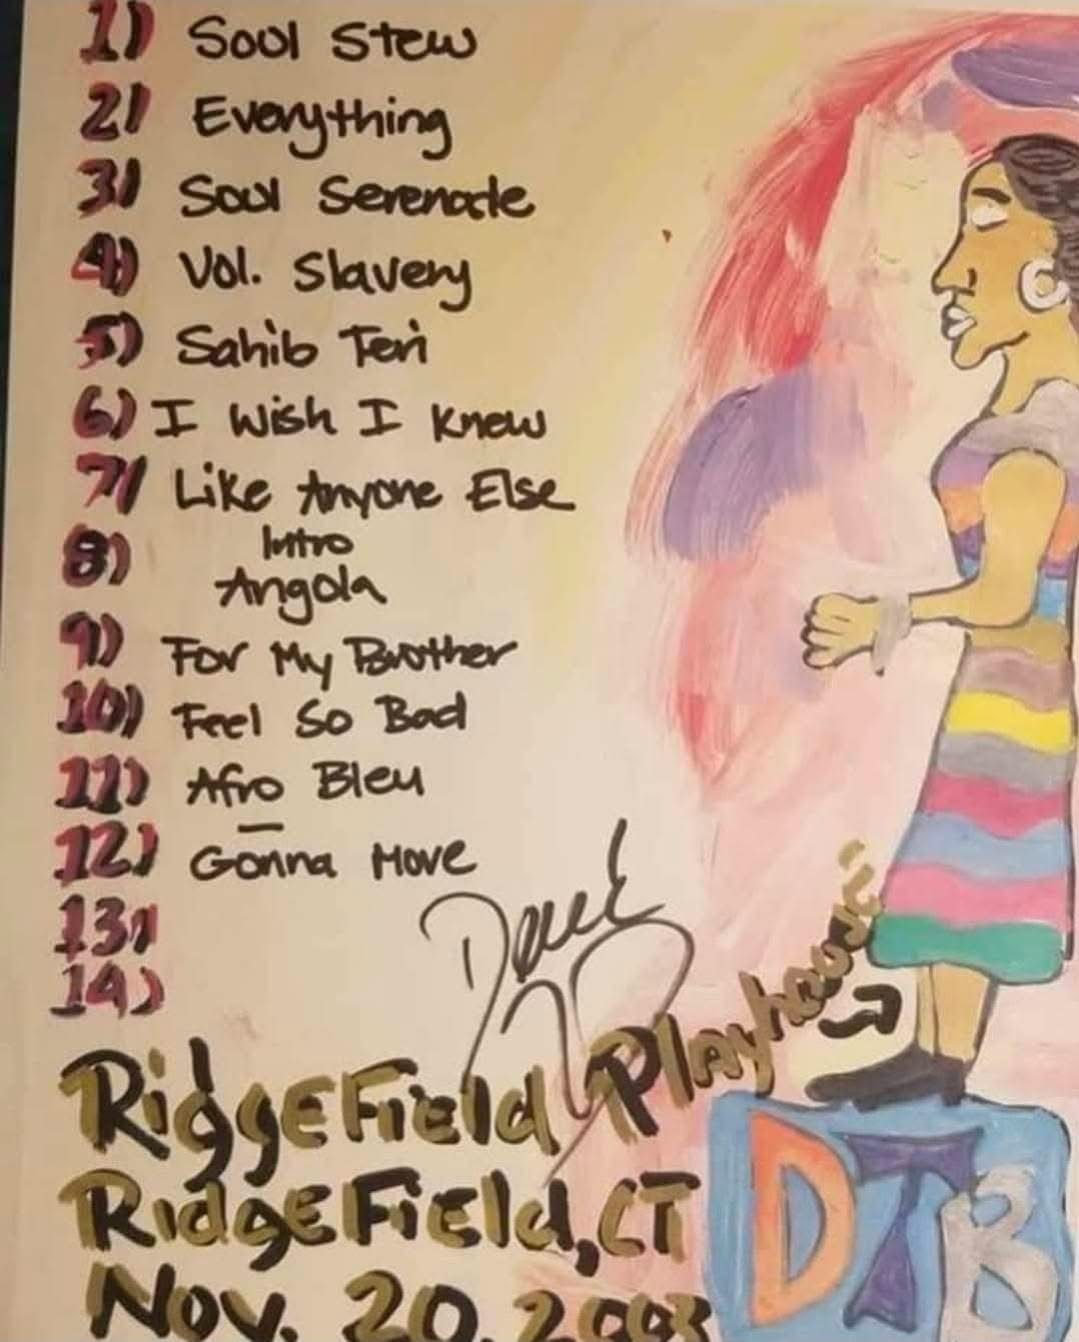 1) Soul Stew
2) Everything
3) Soul Serenade
4) Vol. Slavery
5) Sahib Teri
6) I Wish I Knew
7) Like Anyone Else
8) Intro
Angola
9) For My Brother
10) Feel So Bad
11) Afro Bleu
12) Gonna Move
13)
14)
RiggeField Playhouse
RidgeField, CT
Nov. 20, 2003
DTB